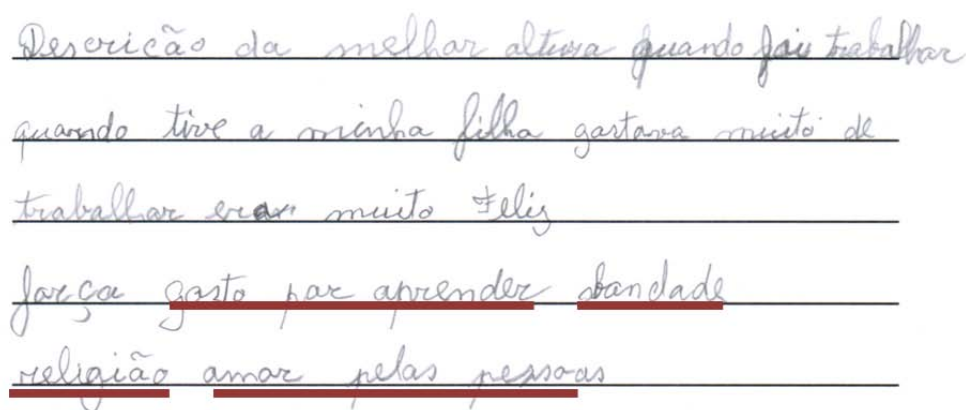 Descricão da melhar altura quando foi trabalhar
quando tive a minha filha gastava muito de
trabalhar era muito Feliz
farça gasto par aprender bandade
religião amar pelas pessoas